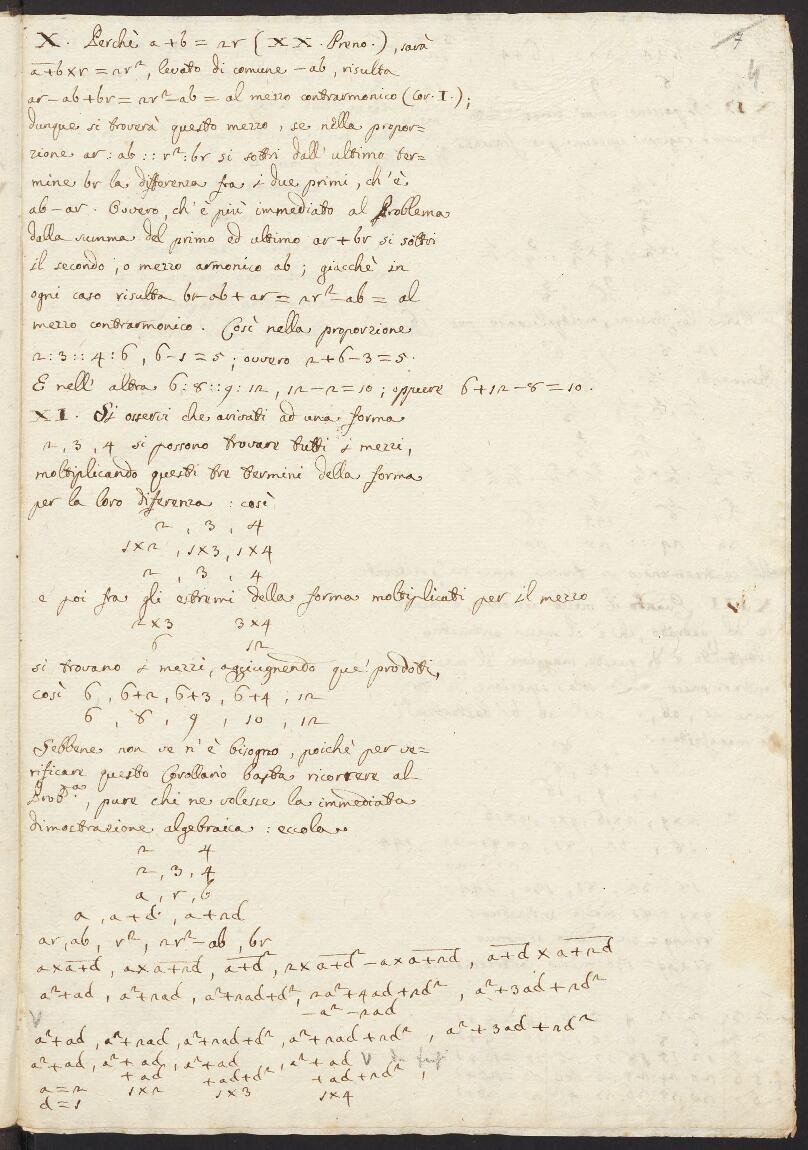 7
4
X. Perchè a+b = 2r (XX. Preno.), sarà
a+b×r = 2r², levato di comune -ab, risulta
ar-ab+br = 2r²-ab = al mezzo contrarmonico (Cor. I.);
dunque si troverà questo mezzo, se nella propor=
zione ar:ab::r²:br si sottri dall' ultimo ter=
mine br la differenza fra i due primi, ch'è
ab-ar. Ovvero, ch'è più immediato al Problema
dalla summa del primo ed ultimo ar+br si sottri
il secondo, o mezzo armonico ab; giacchè in
ogni caso risulta br-ab+ar = 2r²-ab = al
mezzo contrarmonico. Così nella proporzione
2:3::4:6, 6-1=5; ovvero 2+6-3=5.
E nell' altra 6:8::9:12, 12-2=10; oppure 6+12-8=10.
XI. Si osservi che arivati ad una forma
2, 3, 4 si possono trovare tutti i mezzi,
moltiplicando questi tre termini della forma
per la loro diferenza: così
2, 3, 4
1×2, 1×3, 1×4
2, 3, 4
e poi fra gli estremi della forma moltiplicati per il mezzo
2×3 3×4
6 12
si trovano i mezzi, aggiugnendo que' prodotti,
così 6, 6+2, 6+3, 6+4, 12
6, 8, 9, 10, 12
Sebbene non ve n'è bisogno, poichè per ve=
rificare questo Corollario basta ricorrere al
Prob.ª, pure chi ne volesse la immediata
dimostrazione algebraica: eccola
2 4
2, 3, 4
a, r, b
a, a+d, a+2d
ar, ab, r², 2r²-ab, br
a×a+d, a×a+2d, a+d², 2×a+d²-a×a+2d, a+d×a+2d
a²+ad, a²+2ad, a²+2ad+d², 2a²+4ad+2d², a²+3ad+2d²
-a²-2ad
V
a²+ad, a²+2ad, a²+2ad+d², a²+2ad+2d², a²+3ad+2d²
a²+ad, a²+ad, a²+ad, a²+ad V
+ad +ad+d² +ad+2d²,
a=2 1×2 1×3 1×4
d=1